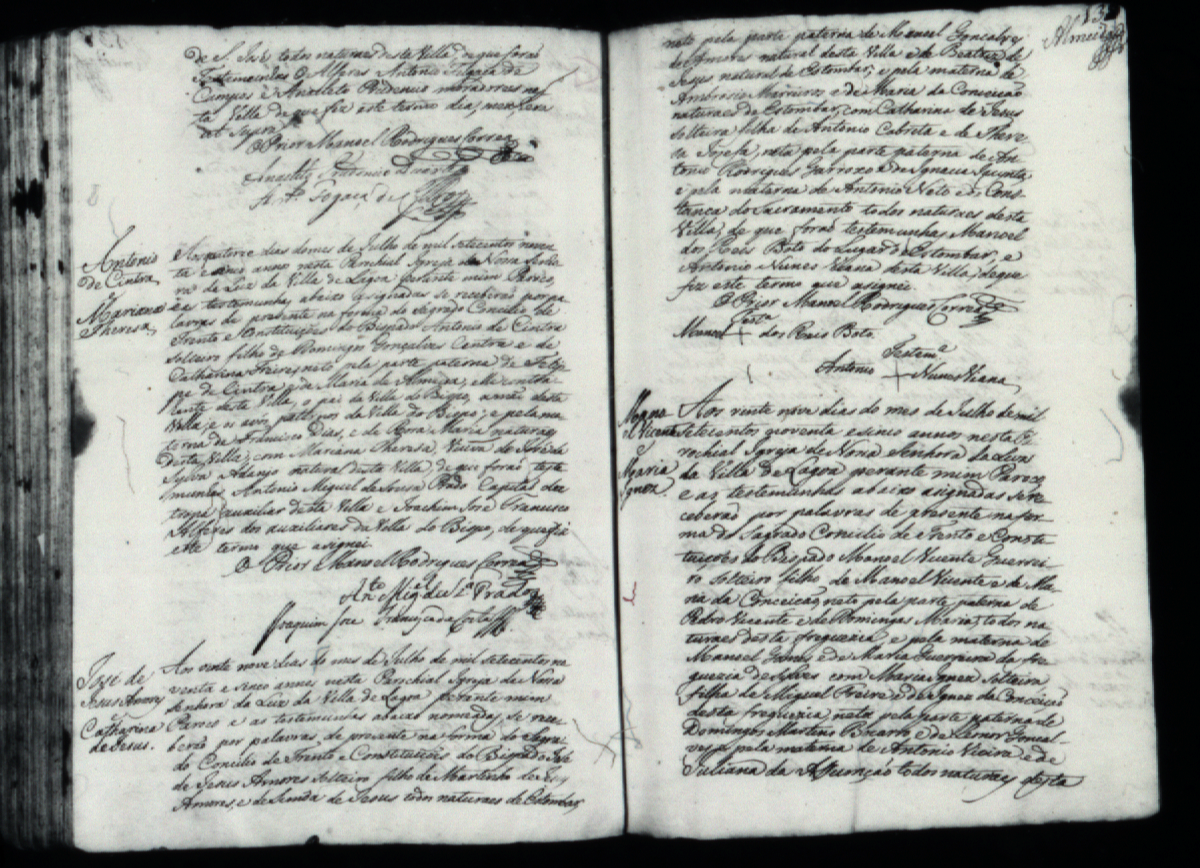 de S. José todos naturaes desta Villa de que forão
Testemunhas O Alferes Antonio Fogaça de
Campos e Anacleto Prudencio moradores nes
ta Villa de que fiz este termo dia, mes, era
ut Supra.
O Prior Manoel Rodrigues Correa
Antonio
de Cintra
Mariana
Theresa
Aos quatorze dias do mes de Julho de mil setecentos noven
ta e sinco anno nesta Parochial Igreja de Nossa Senho
ra da Luz da Villa de Lagoa perante mim Paroco
e as testemunhas abaixo asignadas se receberão por pa
lavras de prezente na forma do Sagrado Concilio de
Trento e Constituições do Bispado Antonio de Cintra
Solteiro filho de Domingos Gonçalves Centra e de
Catharina Freires neto pela parte paterna de Felip
pe de Cintra e de Maria de Almeida
Villa, o pai de Villa do Bispo, a mai desta
Villa, e si avós pattrnos da Villa do Bispo; e pela ma
terna de Francisco Dias, e de Rosa Maria naturaes
desta Villa; com Mariana Theresa Viuva de José da
Sylva Adanjo natural desta Villa, de que forão teste
munhas Antonio Miguel de Sousa Prado Capitão da
tropa auxiliar desta Villa e Joachim José Francisco
Alferes dos auxiliares da Villa do Bispo, de que fiz
este termo que asignei
O Prior Manoel Rodrigues Correa
Anto Migel de Sza Prado
Joaquim Jose Francisco da Costa
José de
Jesus Amores
Catharina
de Jesus.
Aos vente nove dias do mes de Julho de mil setecentos no
venta e sinco annos nesta Parochial Igreja de Nossa
Senhora da Luz da Villa de Lagoa perante mim
Paroco e as testemunhas abaixo nomeadas, se rece
berão por palavras de prezente na forma do Sagra
do Concilio de Trento e Constituições do Bispado José
de Jesus Amores Solteiro filho de Martinho de Jesus
Amores, e de de Jesus todos naturaes de Estombar
13
Almeida
neto pela parte paterna de Manoel Goncalves
de Amores natural desta Villa e de Beatres de
Jesus natural de Estombar; e pela materna de
Ambrosio Marreiros e de Maria da Conceição
naturaes de Estombar, com Catharina de Jesus
Solteira filha de Antonio Cabrita e de There
sa Josefa, neta pela parte paterna de An
tonio Rodrigues Garroxo e de Ignacia Jacinta
e pela materna de Antonio Neto e de Cons
tança do Sacramento todos naturaes desta
Villa; de que forão testemunhas Manoel
dos Reis Boto do Lugar de Estombar, e
Antonio Nunes Viana desta Villa, de que
fiz este termo que asignei
O Prior Manoel Rodrigues Correa
Testa
Manoel + dos Reis Boto.
Testema
Antonio + Nunes Viana
Mano
el Vicente
Maria
Ignez
Aos vinte nove dias do mes de Julho de mil
setecentos noventa e sinco annos nesta Pa
rochial Igreja de Nossa Senhora da Luz
da Villa de Lagoa perante mim Paroco
e as testemunhas abaixo asignadas se re
ceberão por palavras de prezente na for
ma do Sagrado Concilio de Trento e Consti
tuições do Bispado Manoel Vicente Guerrei
ro Solteiro filho de Manoel Vicente e de Ma
ria da Conceicao, neto pela parte paterna de
Pedro Vicente e de Domingas Maria, todos na
turaes desta freguezia e pela materna de
Manoel Gomes e de Maria Guerreira da fre
guezia de Silves com Maria Ignez Solteira
filha de Miguel Freire e de Ignez da Conceição
desta freguezia neta pela parte paterna de
Domingos Martins Bicarro e de Leonor Goncal
ves e pela materna de Antonio Vieira e de
Juliana da Assunção todos naturaes desta